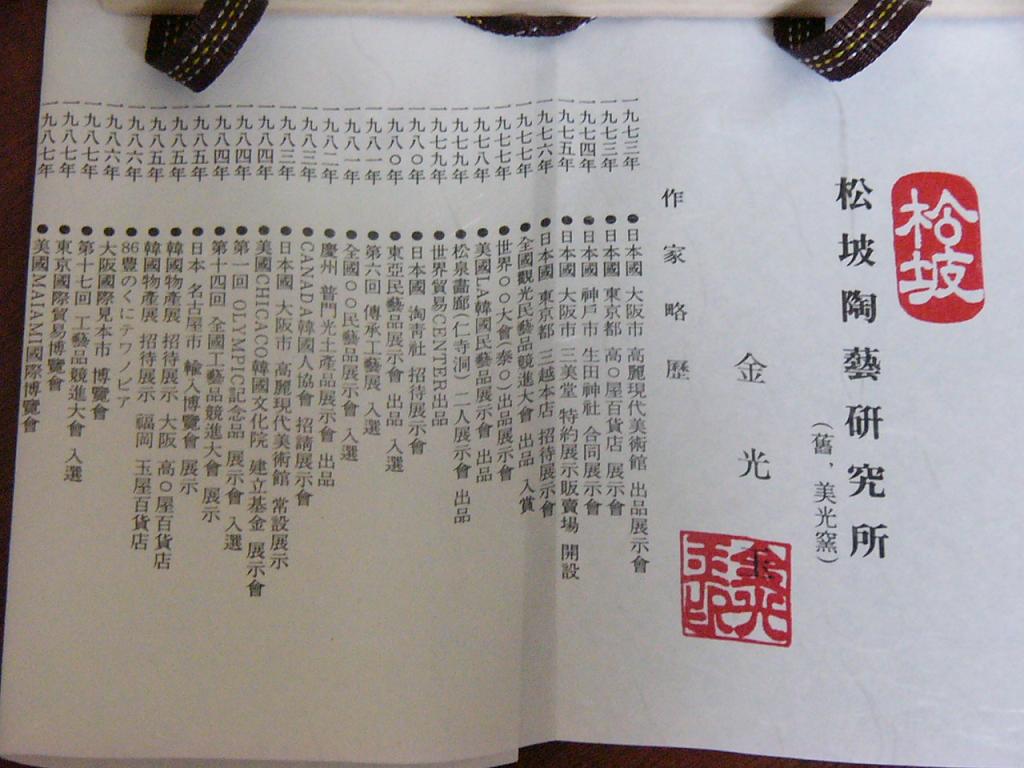 松坡
松坡陶藝研究所
(舊, 美光窯)
金光玉
作家略歷
一九七三年 ●日本國 大阪市 高麗現代美術館 出品展示會
一九七三年 ●日本國 東京都 高○屋百貨店 展示會
一九七四年 ●日本國 神戶市 生田神社 合同展示會
一九七五年 ●日本國 大阪市 三美堂 特約展示販賣場 開設
一九七六年 ●日本國 東京都 三越本店 招待展示會
一九七七年 ●全國觀光民藝品競進大會 出品 入賞
一九七七年 ●世界○○大會(泰○)出品展示會
一九七八年 ●美國LA韓國民藝品展示會 出品
一九七九年 ●松泉畵廊(仁寺洞)二人展示會 出品
一九七九年 ●世界貿易CENTER出品
一九八○年 ●日本國 淘靑社 招待展示會
一九八○年 ●東亞民藝品展示會 出品 入選
一九八一年 ●第六回 傳承工藝展 入選
一九八一年 ●全國○○民藝品展示會 入選
一九八二年 ●慶州 普門光土產品展示會 出品
一九八三年 ●CANADA韓國人協會 招請展示會
一九八三年 ●日本國 大阪市 高麗現代美術館 常設展示
一九八四年 ●美國CHICACO韓國文化院 建立基金 展示會
一九八四年 ●第一回 OLYMPIC記念品 展示會 入選
一九八四年 ●第十四回 全國工藝品競進大會 展示
一九八五年 ●日本 名古屋市 輸入博覽會 展示
一九八五年 ●韓國物產展 招待展示 大阪 高○屋百貨店
一九八五年 ●韓國物產展 招待展示 福岡 玉屋百貨店
一九八六年 ●86豊のくにテワノビア
一九八六年 ●大阪國際見本市 博覽會
一九八七年 ●第十七回 工藝品競進大會 入選
一九八七年 ●東京國際貿易博覽會
一九八七年 ●美國MAIAMI國際博覽會